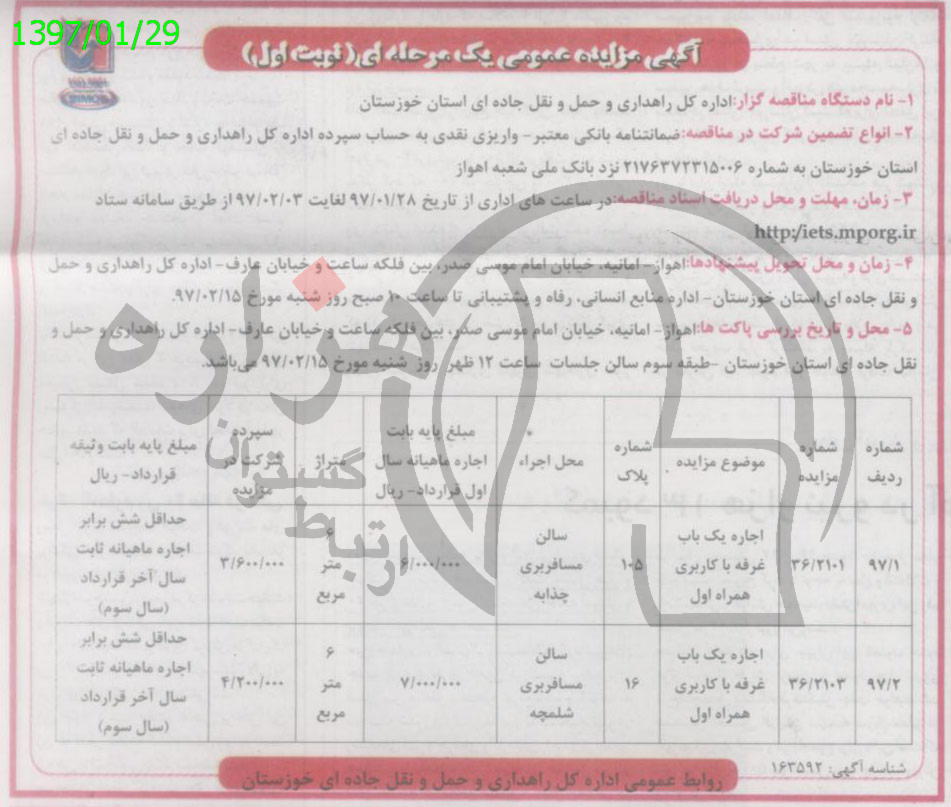 1397/01/29
آگهی مزایده عمومی یک مرحله ای( نوبت اول)
۱- نام دستگاه مناقصه گزار:اداره کل راهداری و حمل و نقل جاده ای استان خوزستان
۲- انواع تضمین شرکت در مناقصه:ضمانتنامه بانکی معتبر- واریزی نقدی به حساب سپرده اداره کل راهداری و حمل و نقل جاده ای
استان خوزستان به شماره ۲۱۷۶۳۷۲۳۱۵۰۰۶ نزد بانک ملی شعبه اهواز
۳- زمان، مهلت و محل دریافت اسناد مناقصه:در ساعت های اداری از تاریخ ۹۷/۰۱/۲۸ لغایت ۹۷/۰۲/۰۳ از طریق سامانه ستاد
http:/iets.mporg.ir
۴- زمان و محل تحویل پیشنهادها:اهواز- امانیه، خیابان امام موسی صدر، بین فلکه ساعت و خیابان عارف- اداره کل راهداری و حمل
و نقل جاده ای استان خوزستان- اداره منابع انسانی، رفاه و پشتیبانی تا ساعت ۱۰ صبح روز شنبه مورخ ۹۷/۰۲/۱۵.
۵- محل و تاریخ بررسی پاکت ها:اهواز- امانیه، خیابان امام موسی صدر، بین فلکه ساعت و خیابان عارف- اداره کل راهداری و حمل و
نقل جاده ای استان خوزستان -طبقه سوم سالن جلسات ساعت ۱۲ ظهر روز شنبه مورخ ۹۷/۰۲/۱۵ می‌باشد.
شماره ردیف شماره مزایده موضوع مزایده شماره پلاک محل اجراء مبلغ پایه بابت اجاره ماهیانه سال اول قرارداد- ریال متراژ سپرده شرکت در مزایده مبلغ پایه بابت وثیقه قرارداد- ریال
۹۷/۱ ۳۶/۲۱۰۱ اجاره یک باب غرفه با کاربری همراه اول ۱۰۵ سالن مسافربری چذابه ۶/۰۰۰/۰۰۰ ۶ متر مربع ۳/۶۰۰/۰۰۰ حداقل شش برابر اجاره ماهیانه ثابت سال آخر قرارداد (سال سوم)
۹۷/۲ ۳۶/۲۱۰۳ اجاره یک باب غرفه با کاربری همراه اول ۱۶ سالن مسافربری شلمچه ۷/۰۰۰/۰۰۰ ۶ متر مربع ۴/۲۰۰/۰۰۰ حداقل شش برابر اجاره ماهیانه ثابت سال آخر قرارداد (سال سوم)
شناسه آگهی: ۱۶۳۵۹۲
روابط عمومی اداره کل راهداری و حمل و نقل جاده ای خوزستان
هزاره
گستران
ارتباط